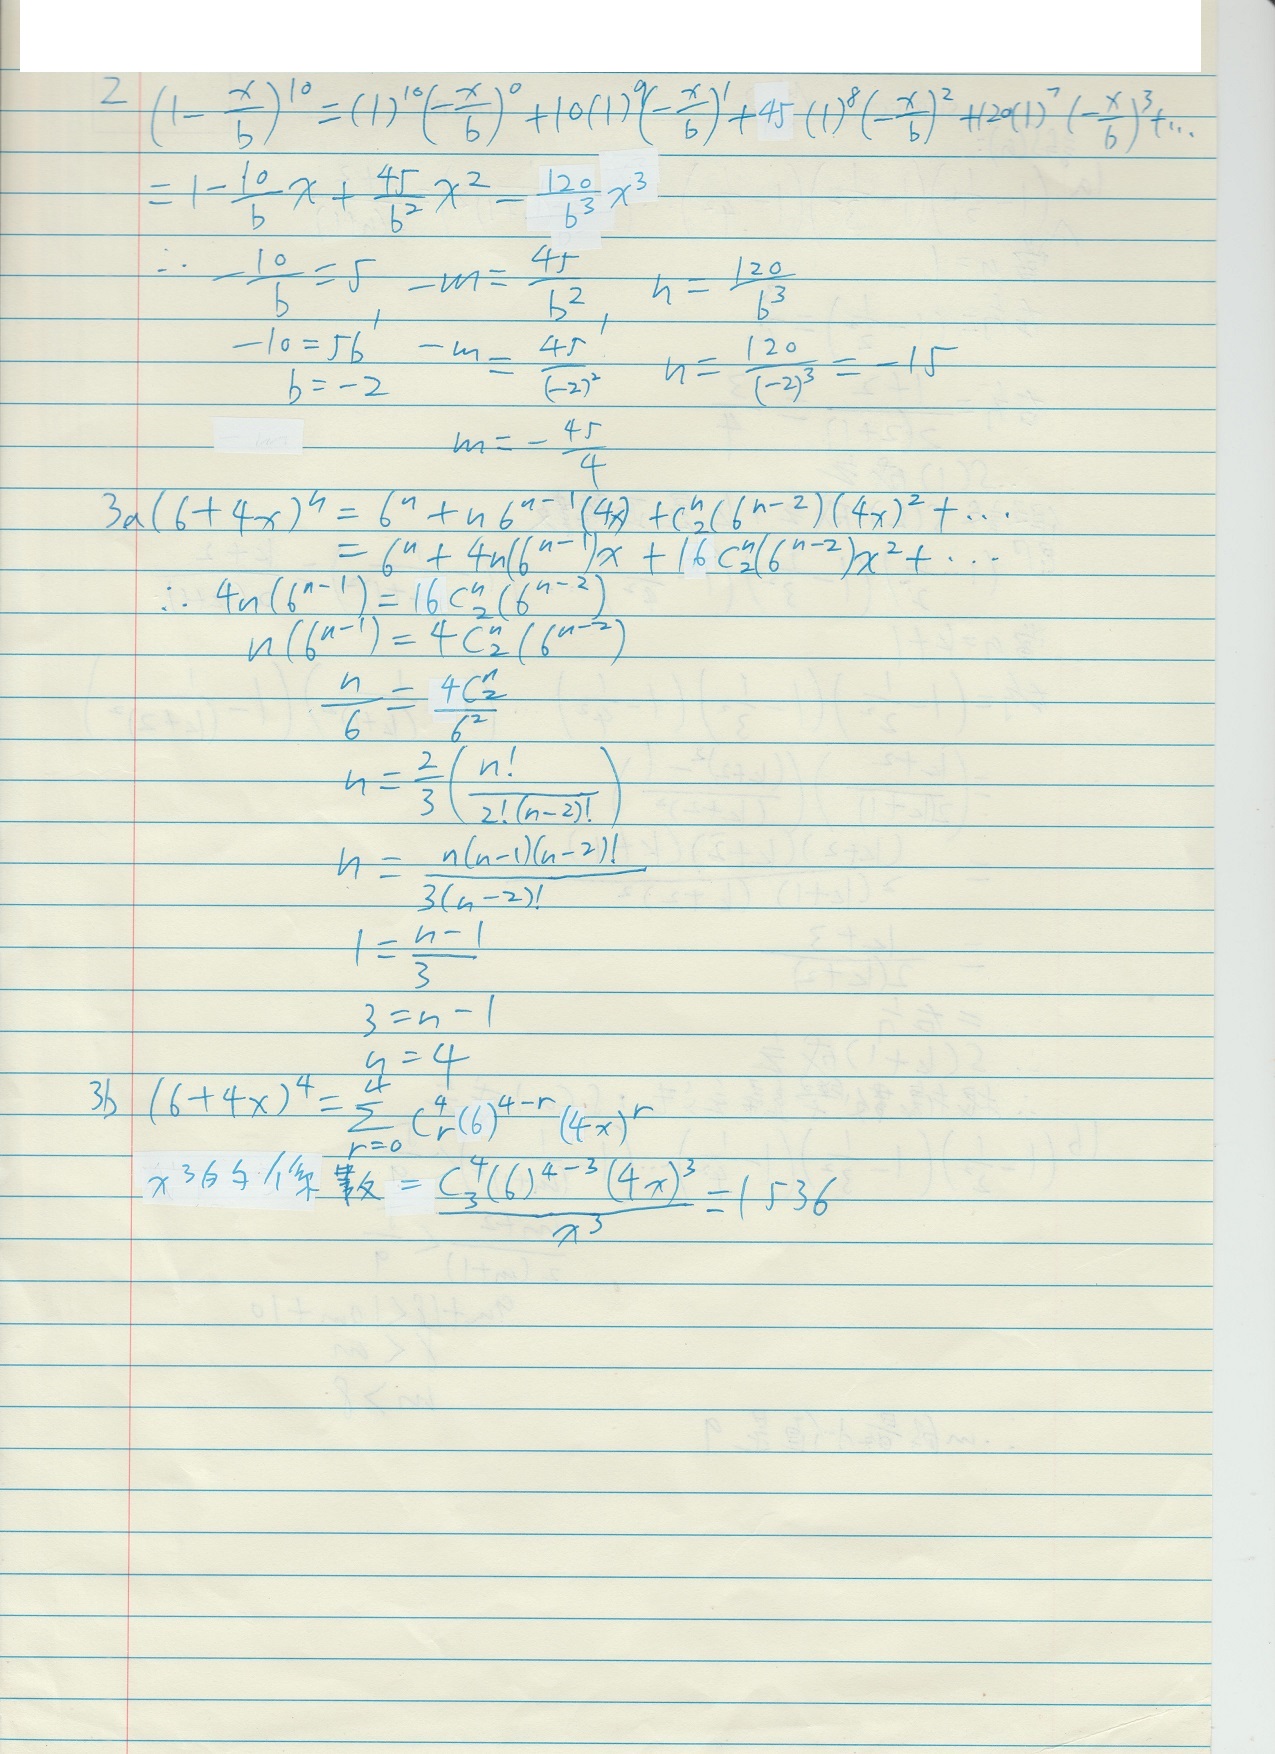 2 (1 - x/b)^10 = (1)^10(-x/b)^0 + 10(1)^9(-x/b)^1 + 45(1)^8(-x/b)^2 + 120(1)^7(-x/b)^3 + ...
= 1 - 10/b x + 45/b^2 x^2 - 120/b^3 x^3
∴ -10/b = 5, -m = 45/b^2, n = 120/b^3
-10 = 5b -m = 45/(-2)^2 n = 120/(-2)^3 = -15
b = -2
m = -45/4
3a (6+4x)^n = 6^n + n6^(n-1)(4x) + C^n_2(6^(n-2))(4x)^2 + ...
= 6^n + 4n(6^(n-1))x + 16C^n_2(6^(n-2))x^2 + ...
∴ 4n(6^(n-1)) = 16C^n_2(6^(n-2))
n(6^(n-1)) = 4C^n_2(6^(n-2))
n/6 = 4C^n_2/6^2
n = 2/3 (n!/2!(n-2)!)
n = n(n-1)(n-2)!/3(n-2)!
1 = n-1/3
3 = n-1
n = 4
3b (6+4x)^4 = Σ^4_r=0 C^4_r(6)^(4-r)(4x)^r
x^3的係數 = C^4_3(6)^(4-3)(4x)^3/x^3 = 1536